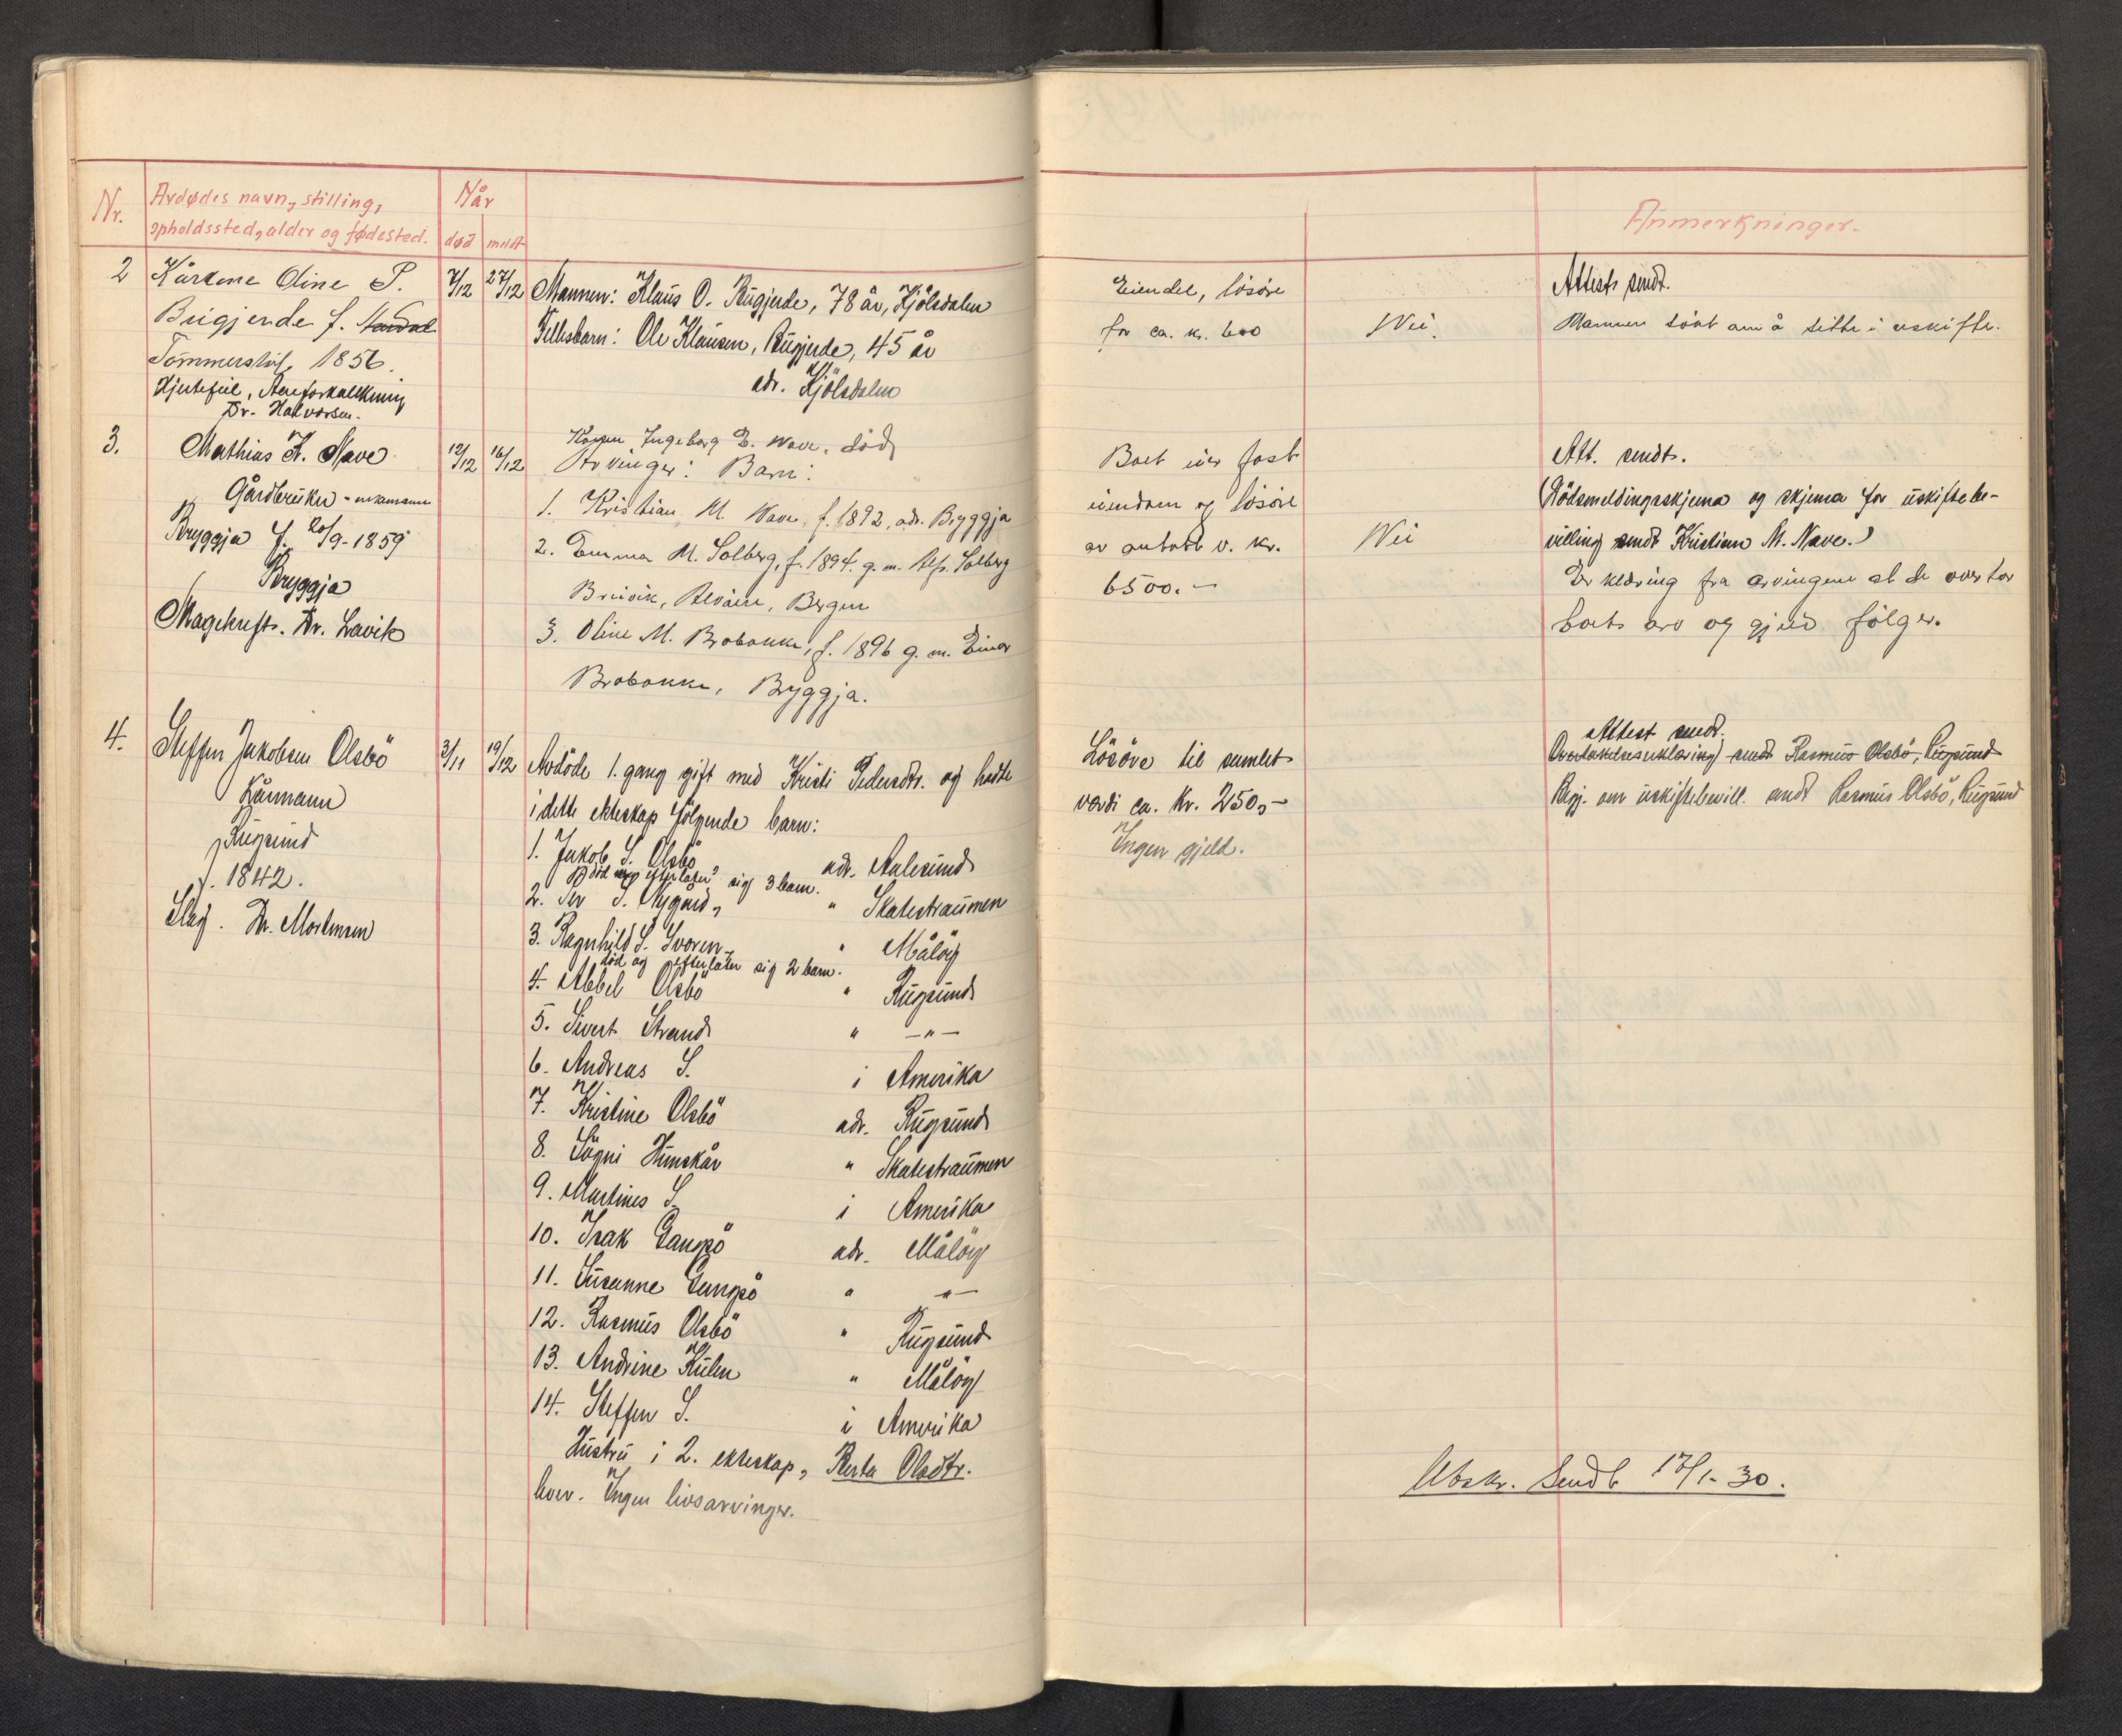 Nr.
Avdødes navn, stilling,
opholdssted, alder og fødested.
Når
død meldt
Anmerkninger.
2 Kårkone Oline P.
Bugjerde f.
Tømmerstøl, 1856.
Hjertefeil, Areforkalkning
Dr. Halvorsen.
7/12 27/12
Mannen: Klaus O. Bugjerde, 78 år, Kjölsdalen
Fellesbarn: Ole Klausen, Bugjerde, 45 år
adr. Kjölsdalen
Eiendel, lösöre
for ca. kr. 600
Nei.
Attest sendt.
Mannen sökt om å sitte i uskifte.
3. Mathias K. Nave
Gårdbruker - enkemann
Bryggja f. 20/9-1859
Bryggja
Magekreft. Dr. Lavik
12/12 16/12
Konen Ingeborg E. Nave, död
Arvinger: Barn:
1. Kristian M. Nave, f. 1892, adr. Bryggja
2. Emma M. Solberg, f. 1894. g. m. Alf. Solberg
Breivik, Alvöen, Bergen
3. Oline M. Brobakke, f. 1896 g. m. Einar
Brobakke, Bryggja.
Boet eier fast
eiendom og lösöre
av antatt v. kr.
6500.-
Nei
Att. sendt.
(Dödsmeldingsskjema og skjema for uskiftebe-
villing sendt Kristian M. Nave.)
Erklæring fra arvingene at de overtar
boets arv og gjeld fölger.
4. Steffen Jakobsen Olsbö
Kårmann
Rugsund
f. 1842.
Slag. Dr. Mortensen
3/11 19/12
Avdöde 1. gang gift med Kristi Pedersdtr. og hadde
i dette ekteskap fölgende barn:
1. Jakob S. Olsbö adr. Aalesund
Död og efterlater sig 3 barn.
2. Per S. Nygård, " Skatestraumen
3. Ragnhild S. Svoren " Målöy
död og efterlater sig 2 barn.
4. Abbel Olsbö " Rugsund
5. Sivert Strand " -"-
6. Andreas S. i Amerika
7. Kristine Olsbö adr. Rugsund
8. Sögni Humskår " Skatestraumen
9. Martines S. i Amerika
10. Isak Gangsö adr. Målöy
11. Susanne Gangsö " -"-
12. Rasmus Olsbö " Rugsund
13. Andrine Kulen " Målöy
14. Steffen S. i Amerika
Hustru i 2. ekteskap, Berta Olsdtr.
lever. Ingen livsarvinger.
Lösöre til samlet
verdi ca. kr. 250,-
Ingen gjeld.
Attest sendt.
Overtakelseserklæring sendt Rasmus Olsbö, Rugsund
Begj. om uskiftebevill. sendt Rasmus Olsbö, Rugsund
Utskr. sendt 17/1-30.